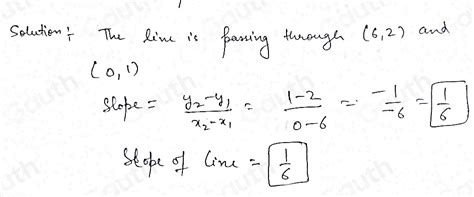 Solution:- The line is passing through (6,2) and
(0,1)
Slope = y₂-y₁ / x₂-x₁ = 1-2 / 0-6 = -1 / -6 = 1/6
Slope of line = 1/6